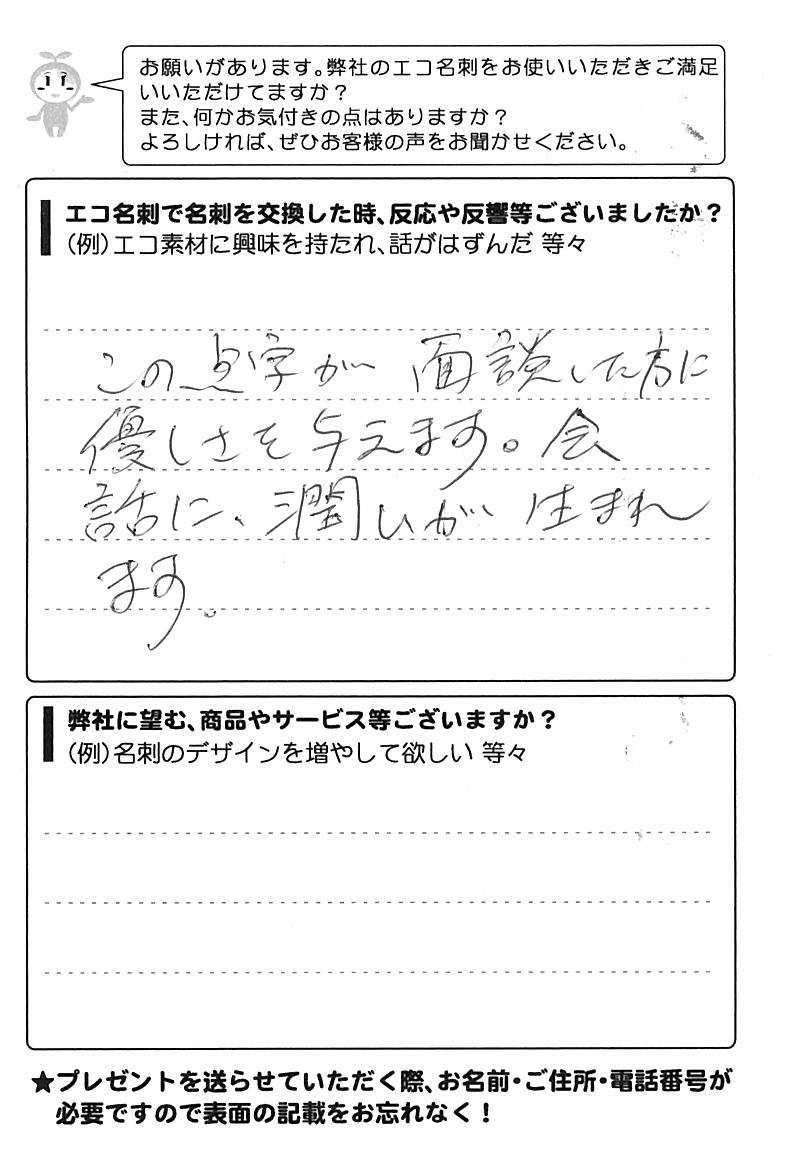 お願いがあります。弊社のエコ名刺をお使いいただきご満足
いいただけてますか？
また、何かお気付きの点はありますか？
よろしければ、ぜひお客様の声をお聞かせください。
エコ名刺で名刺を交換した時、反応や反響等ございましたか？
（例）エコ素材に興味を持たれ、話がはずんだ 等々
この点字が 面談した方に
優しさを与えます。会
話に、潤いが 生まれ
ます。
弊社に望む、商品やサービス等ございますか？
（例）名刺のデザインを増やして欲しい 等々
★プレゼントを送らせていただく際、お名前・ご住所・電話番号が
必要ですので表面の記載をお忘れなく！